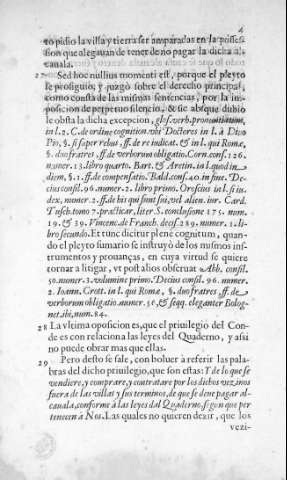 4
to pidio la villa y tierra ser amparadas en la posses-
sion que alegauan de tener de no pagar la dicha al-
cauala.
27 Sed hoc nullius momenti est, porque el pleyto
se prosiguio, y juzgò sobre el derecho principal,
como consta de las mismas sentencias, por la im-
posicion de perpetuo silencio, & sic absque dubio
le obsta la dicha excepcion, glos. verb. pronontiatum,
in l. 2. C. de ordine cognition. vbi Doctores in l. à Diuo
Pio, §. si super rebus, ff. de re iudicat. & in l. qui Romæ,
§. duo fratres, ff. de verborum obligatio. Corn. cons. 126.
numer. 13. libro quarto. Bart. & Aretin. in l. quod in-
diem, §. 1. ff. de compensatio. Bald. cons. 40. in fine. De-
cius consil. 96. numer. 2. libro primo. Oroscius in l. si iu-
dex, numer. 2. ff. de his qui sunt sui, vel alien. iur. Card.
Tusch. tomo 7. practicar, liter S. conclusione 175. num.
19. & 39. Vincenc. de Franch. decis. 289. numer. 1. li-
bro secundo. Et tunc dicitur plene cognitum, quan-
do el pleyto sumario se instruyò de los mismos ins-
trumentos y prouanças, en cuya virtud se quiere
tornar a litigar, vt post alios obseruat Abb. consil.
50. numer. 3. volumine primo. Decius consil. 96. numer.
2. Ioann. Crott. in l. qui Romæ, §. duo fratres, ff. de
verborum obligatio. numer. 56, & seqq. eleganter Bolog-
net. ibi, num. 84.
28 La vltima oposicion es, que el priuilegio del Con-
de es con relacion a las leyes del Quaderno, y assi
no puede obrar mas que ellas.
29 Pero desto se sale, con boluer à referir las pala-
bras del dicho priuilegio, que son estas: Y de lo que se
vendiere, y comprare, y contratare por los dichos vezinos
fuera de las villas y sus terminos, de que se deue pagar al-
cauala, conforme à las leyes del Quaderno, segun que per
tenecen à Nos. Las quales no quieren dezir, que los
vezi-